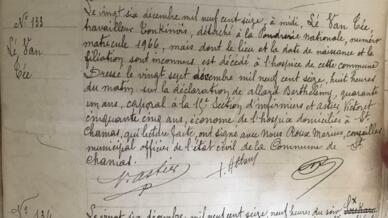 N° 133
Lé Van
Cée
Le vingt six décembre mil neuf cent seize, à midi, Lé Van Cée,
travailleur Tonkinois, détaché à la Poudrerie nationale, numéro
matricule 1966, mais dont le lieu et la date de naissance et la
filiation sont inconnus, est décédé à l'hospice de cette commune
Dressé le vingt sept décembre mil neuf cent seize, huit heures
du matin, sur la déclaration de Allard Barthélemy, quarante
un ans, caporal à la 15e Section d'infirmiers et Astier Victor et
cinquante cinq ans, économe de l'hospice domiciliés à St
Chamas, qui lecture faite, ont signé avec Nous Roux Marius, conseiller
municipal officier de l'état civil de la Commune de St
Chamas.
V. Astier
Allard
N° 134
Le vingt six décembre, mil neuf cent seize, neuf heures du soir,